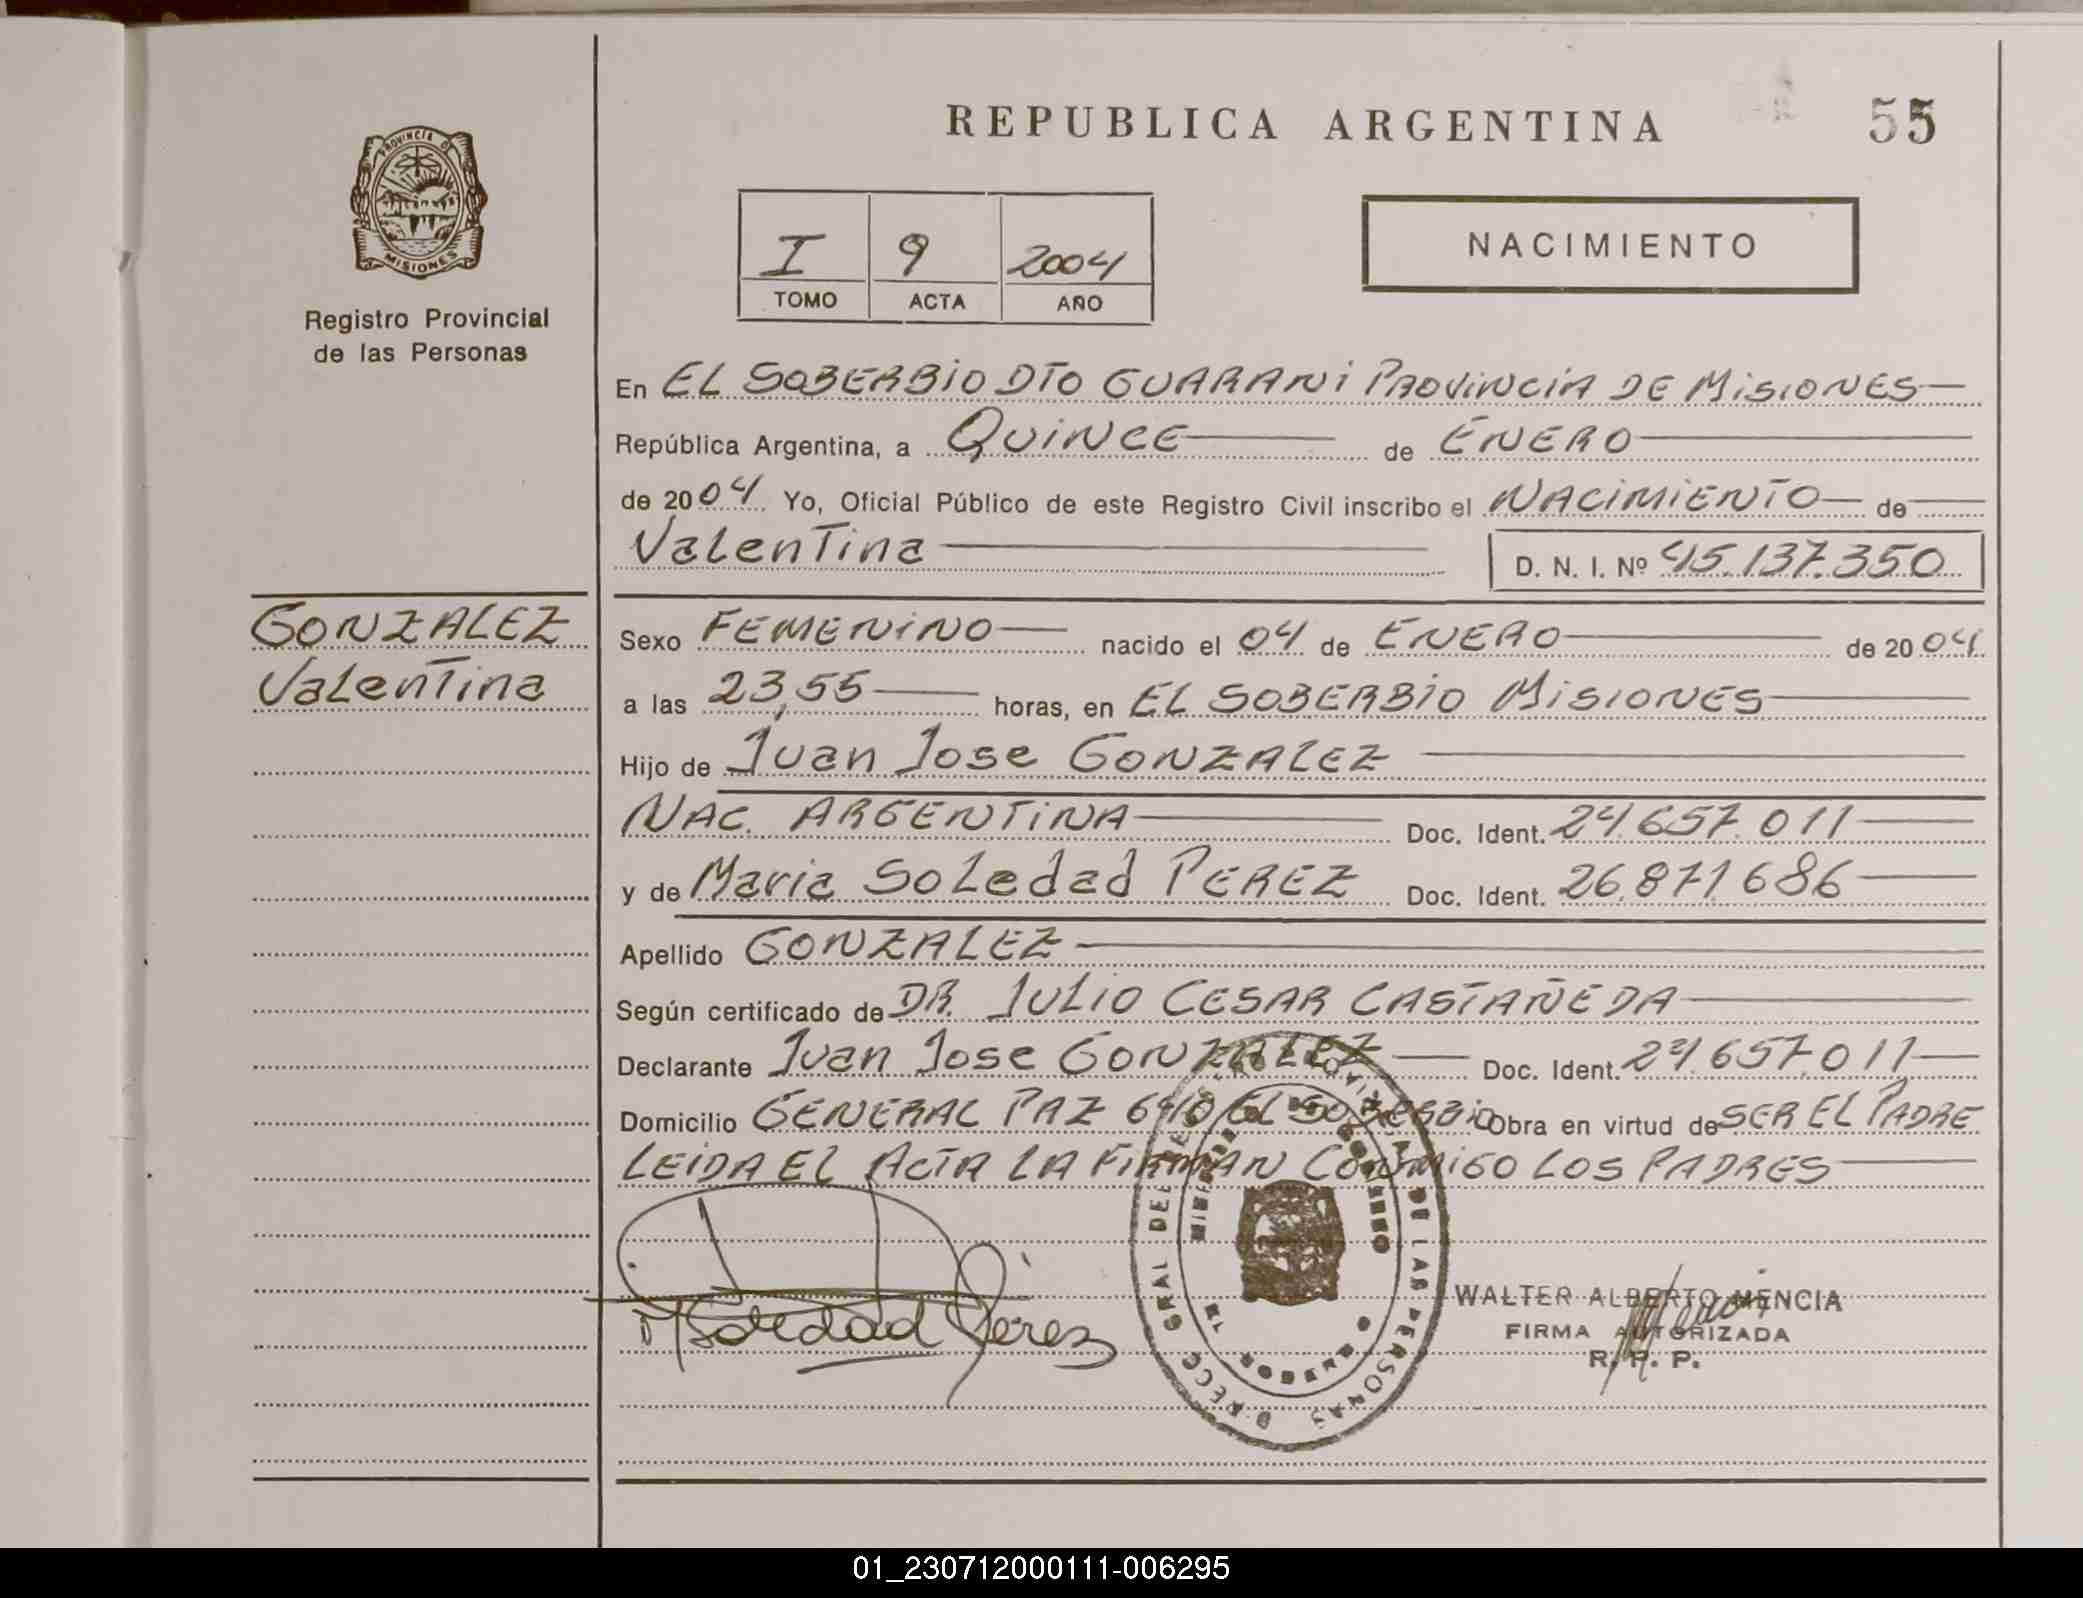 REPUBLICA ARGENTINA
55
PROVINCIA DE
MISIONES
Registro Provincial
de las Personas
I 9 2004
TOMO ACTA AÑO
NACIMIENTO
En EL SOBERBIO DTO GUARANI PROVINCIA DE MISIONES
República Argentina, a QUINCE de ENERO
de 2004 Yo, Oficial Público de este Registro Civil inscribo el NACIMIENTO de
Valentina D. N. I. Nº 45.137.350
GONZALEZ
Valentina
Sexo FEMENINO nacido el 04 de ENERO de 2004
a las 23,55 horas, en EL SOBERBIO MISIONES
Hijo de Juan Jose GONZALEZ
NAC. ARGENTINA Doc. Ident. 24.657.011
y de Maria Soledad PEREZ Doc. Ident. 26.871.686
Apellido GONZALEZ
Según certificado de DR. JULIO CESAR CASTAÑEDA
Declarante Juan Jose GONZALEZ Doc. Ident. 24.657.011
Domicilio GENERAL PAZ EL SOBERBIO Obra en virtud de SER EL PADRE
LEIDA EL ACTA LA FIRMAN CONMIGO LOS PADRES
M Soledad Perez
DE LAS PERSONAS
WALTER ALBERTO MENCIA
FIRMA AUTORIZADA
R. P. P.
01_230712000111-006295